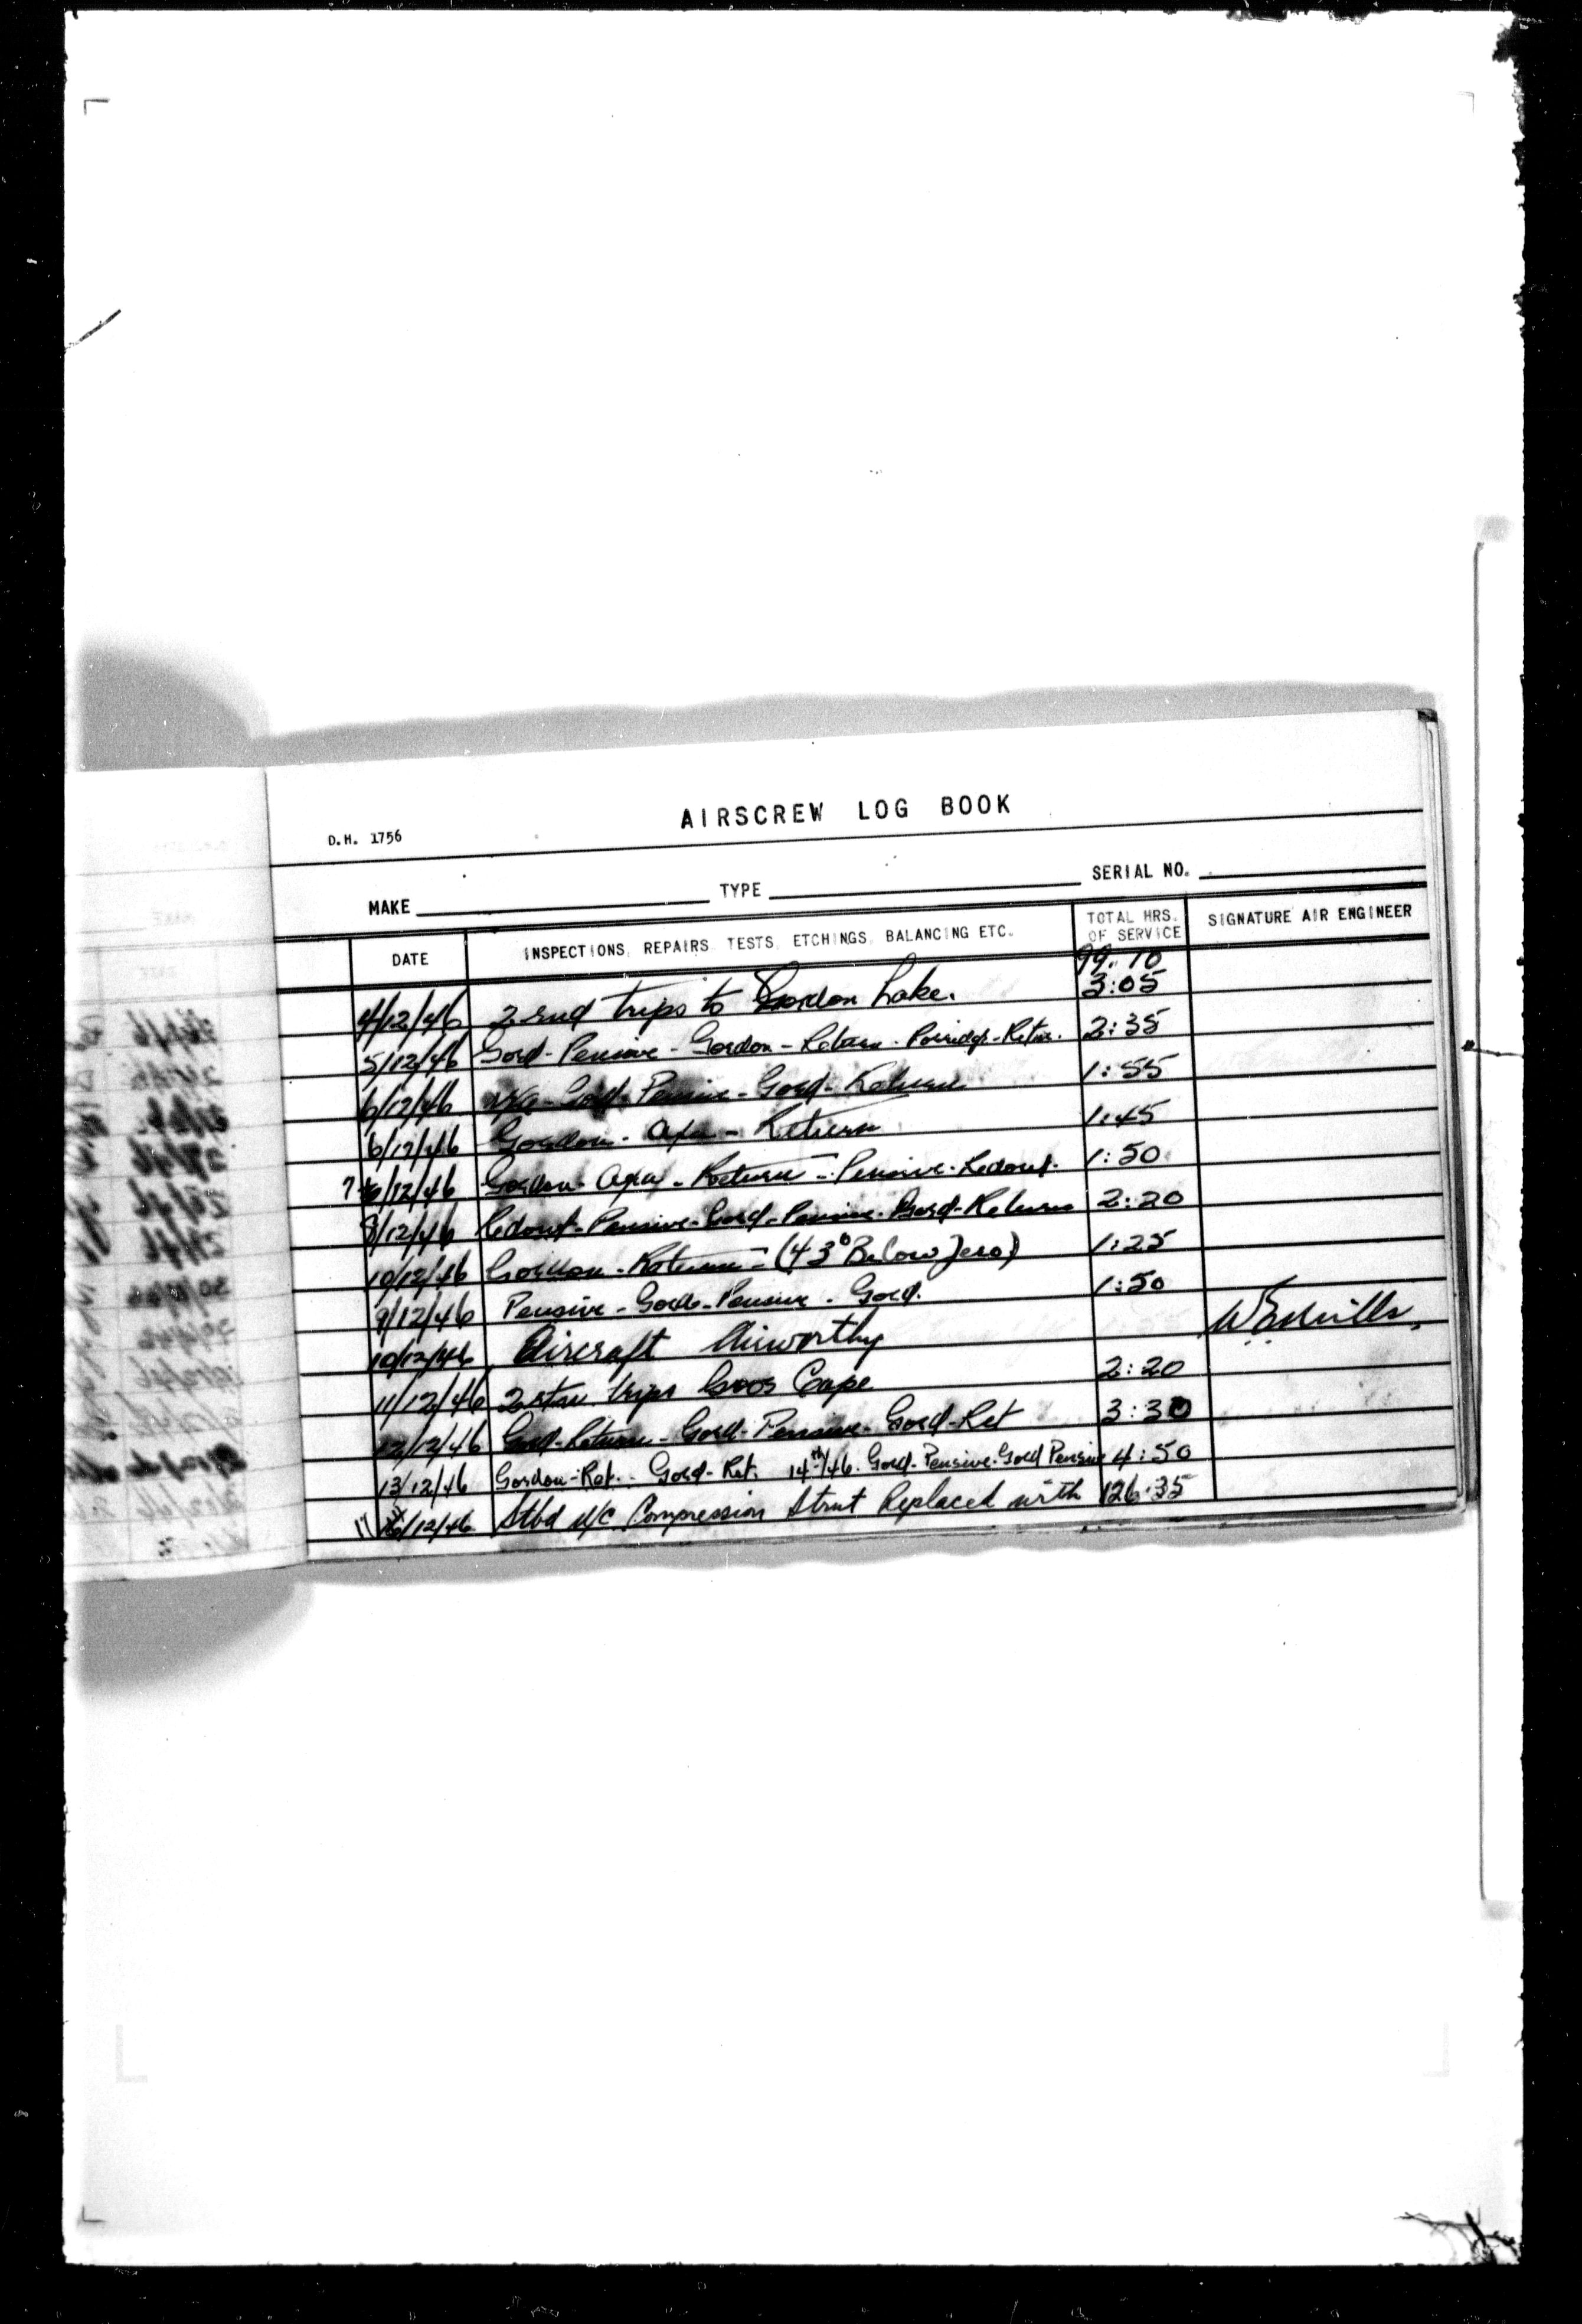 AIRSCREW LOG BOOK
D.H. 1756
MAKE TYPE SERIAL NO.
DATE INSPECTIONS, REPAIRS, TESTS, ETCHINGS, BALANCING ETC. TOTAL HRS. OF SERVICE SIGNATURE AIR ENGINEER
99.10
4/12/46 2 rnd trips to Gordon Lake. 3:05
5/12/46 Gord - Pensive - Gordon - Return - Retur. 2:35
6/12/46 Gord - Pensive - Gord - Return 1:55
6/12/46 Gordon - - Return 1:45
7 /12/46 Gordon - - Return - Pensive - Redout. 1:50
8/12/46 Redout - Pensive - Gord - Pensive - Gord - Return 2:20
10/12/46 Gordon - Return - (43° Below Zero) 1:25
9/12/46 Pensive - Gord - Pensive - Gord. 1:50
10/12/46 Aircraft Airworthy
11/12/46 2 trips Cape 2:20
12/12/46 Gord - Return - Gord - Pensive - Gord - Ret 3:30
13/12/46 Gordon - Ret. - Gord - Ret. 14th/46. Gord - Pensive - Gord Pensive 4:50
11 /12/46 Stbd u/c Compression Strut Replaced with 126:35